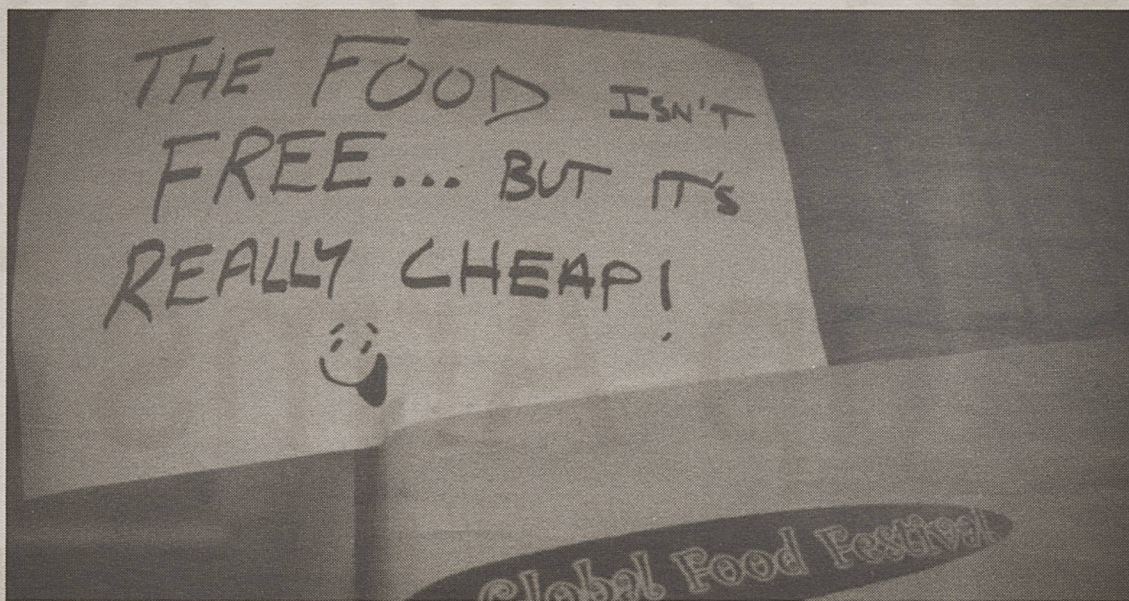 THE FOOD ISN'T
FREE... BUT IT'S
REALLY CHEAP!
Global Food Festival